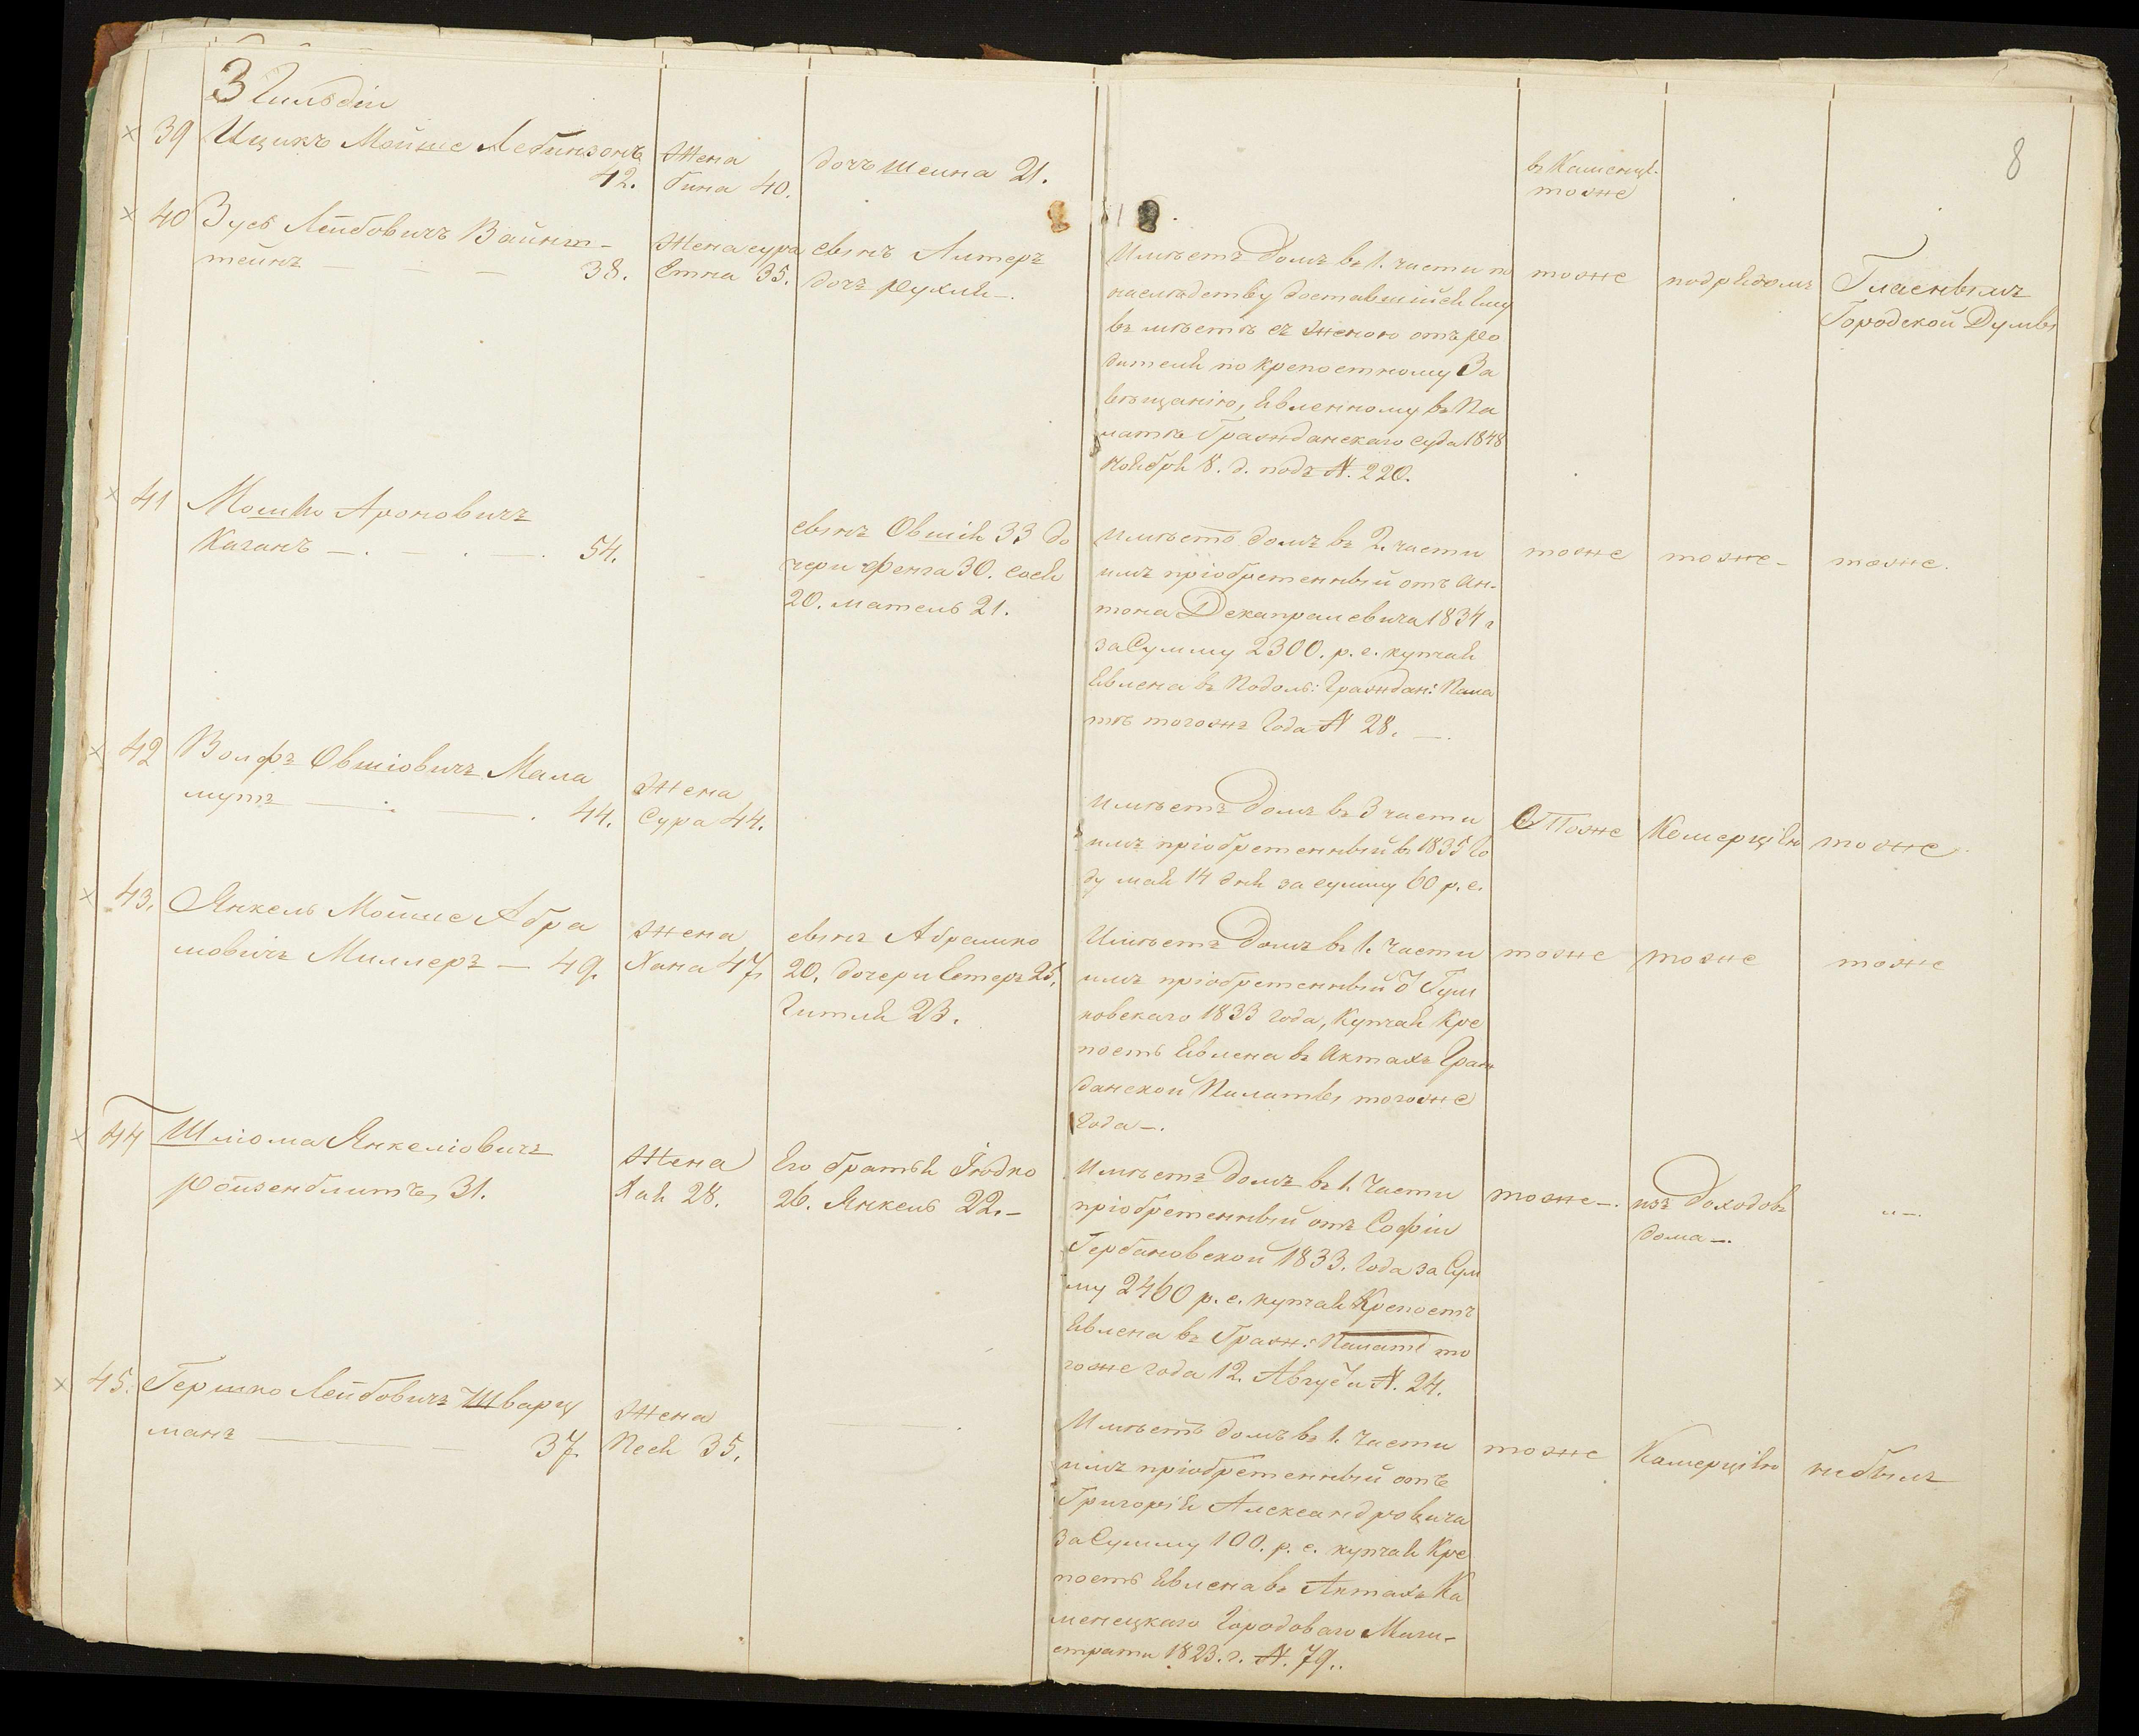 8
3 Гильдіи
39 Ицикъ Мойше Лебинзонъ
42.
Жена
Бина 40.
дочь Шейна 21.
въ Каменце.
тоже
40 Зусь Лейбовичъ Вайнш-
тейнъ — — — 38.
Жена сура
Етна 35.
сынъ Алтеръ
дочь Рухля —.
Имѣетъ Домъ въ 1. части по
наслѣдству доставшийся ему
въ мѣстѣ съ женою отъ ро
дителя по крепостному За
вѣщанію, явленному въ Па
латѣ Гражданскаго суда 1848
ноября 8. д. подъ N. 220.
тоже
подрядомъ
Гласнымъ
Городской Думы
41 Мошко Ароновичъ
Каганъ — . — . — . 54.
сынъ Овшія 33 до
чери Фейга 30. Сося
20. Матель 21.
Имѣетъ домъ въ 2. части
имъ пріобретенный отъ Ан-
тона Декапралевича 1834 г
за Сумму 2300. р. с. купчая
явлена въ Подоль: Граждан: Пала
тѣ тогожъ Года N 28. —.
тоже
тоже —
тоже.
42 Волфъ Овшіовичъ Мала
мутъ — . — . 44.
Жена
Сура 44.
Имѣетъ Домъ въ 3 части
имъ пріобретенный въ 1835 Го
ду мая 14 дня за сумму 60 р. с.
Тоже
Комерціею
тоже
43. Янкель Мойше Абра
мовичъ Миллеръ — 49.
Жена
Хана 47.
сынъ Абрамко
20. дочери Естеръ 25.
Гитля 23.
Имѣетъ Домъ въ 1. части
имъ пріобретенный Ѿ Гум
новскаго 1833 года, Купчая Кре
пость явлена въ Актахъ Граж
данской Палаты тогоже
Года —.
тоже
тоже
тоже
44 Шліома Янкеліовичъ
Ройзенблитъ, 31.
Жена
Хая 28.
Его братья Іюдко
26. Янкель 22. —
Имѣетъ Домъ въ 1. Части
пріобретенный отъ Софіи
Гербановской 1833. Года за Сум
му 2460 р. с. купчая Крепость
явлена въ Граж: Палатѣ то
гоже года 12. Августа N. 24.
тоже —.
изъ Доходовъ
дома —.
„ —.
45. Гершко Лейбовичъ Шварц
манъ — — 37.
Жена
Песя 35.
Имѣетъ домъ въ 1. Части
имъ пріобретенный отъ
Григорія Александровича
за Сумму 100. р. с. купчая Кре
пость явлена въ Актахъ Ка
менецкаго Городоваго Маги-
страта 1823. г. N. 79..
тоже
Камерціею
небылъ